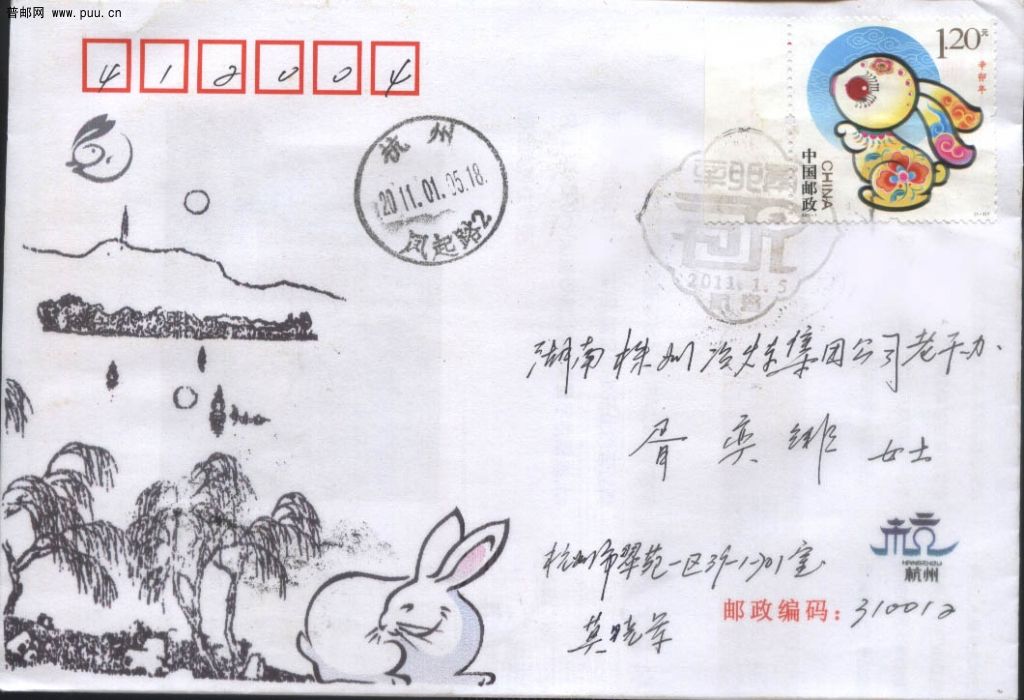 普邮网 www.puu.cn
412004
1.20元
辛卯年
中国邮政
CHINA
杭州
2011.01.05.18.
凤起路2
2011.1.5
湖南株州冶炼集团公司老干办.
女士
杭
HANGZHOU
杭州
杭州市翠苑一区39-1-701室
邮政编码：310012
莫晓军